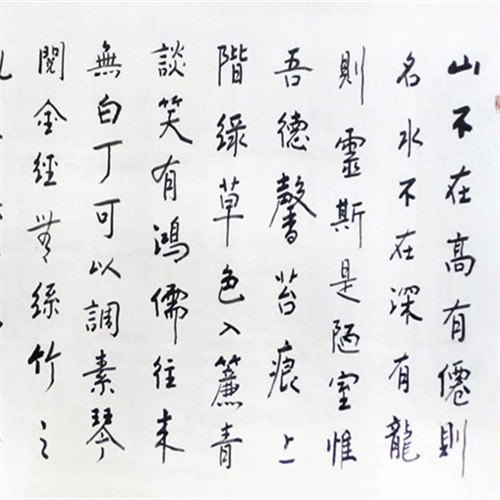 山不在高有僊則
名水不在深有龍
則靈斯是陋室惟
吾德馨苔痕上
階綠草色入簾青
談笑有鴻儒往來
無白丁可以調素琴
閱金經無絲竹之